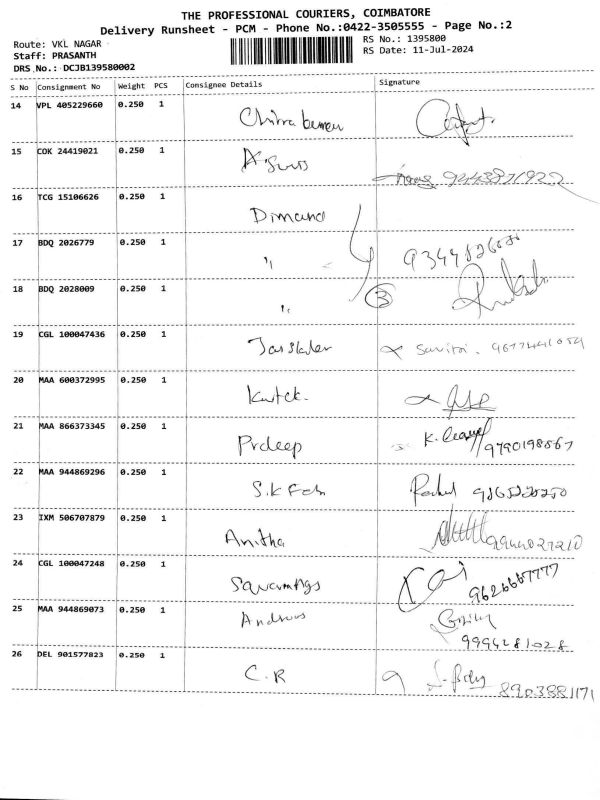 THE PROFESSIONAL COURIERS, COIMBATORE
Delivery Runsheet - PCM - Phone No.:0422-3505555 - Page No.:2
Route: VKL NAGAR
RS No.: 1395800
Staff: PRASANTH
RS Date: 11-Jul-2024
DRS No.: DCJB139580002
S No Consignment No Weight PCS Consignee Details Signature
14 VPL 405229660 0.250 1
15 COK 24419021 0.250 1
16 TCG 15106626 0.250 1 Dimand
17 BDQ 2026779 0.250 1 "
18 BDQ 2028009 0.250 1 " 3
19 CGL 100047436 0.250 1
20 MAA 600372995 0.250 1
21 MAA 866373345 0.250 1 Prdeep 9790198867
22 MAA 944869296 0.250 1 S.K
23 IXM 506707879 0.250 1 Anitha
24 CGL 100047248 0.250 1 9626667777
25 MAA 944869073 0.250 1 9994281028
26 DEL 901577823 0.250 1 C.R 8903881171